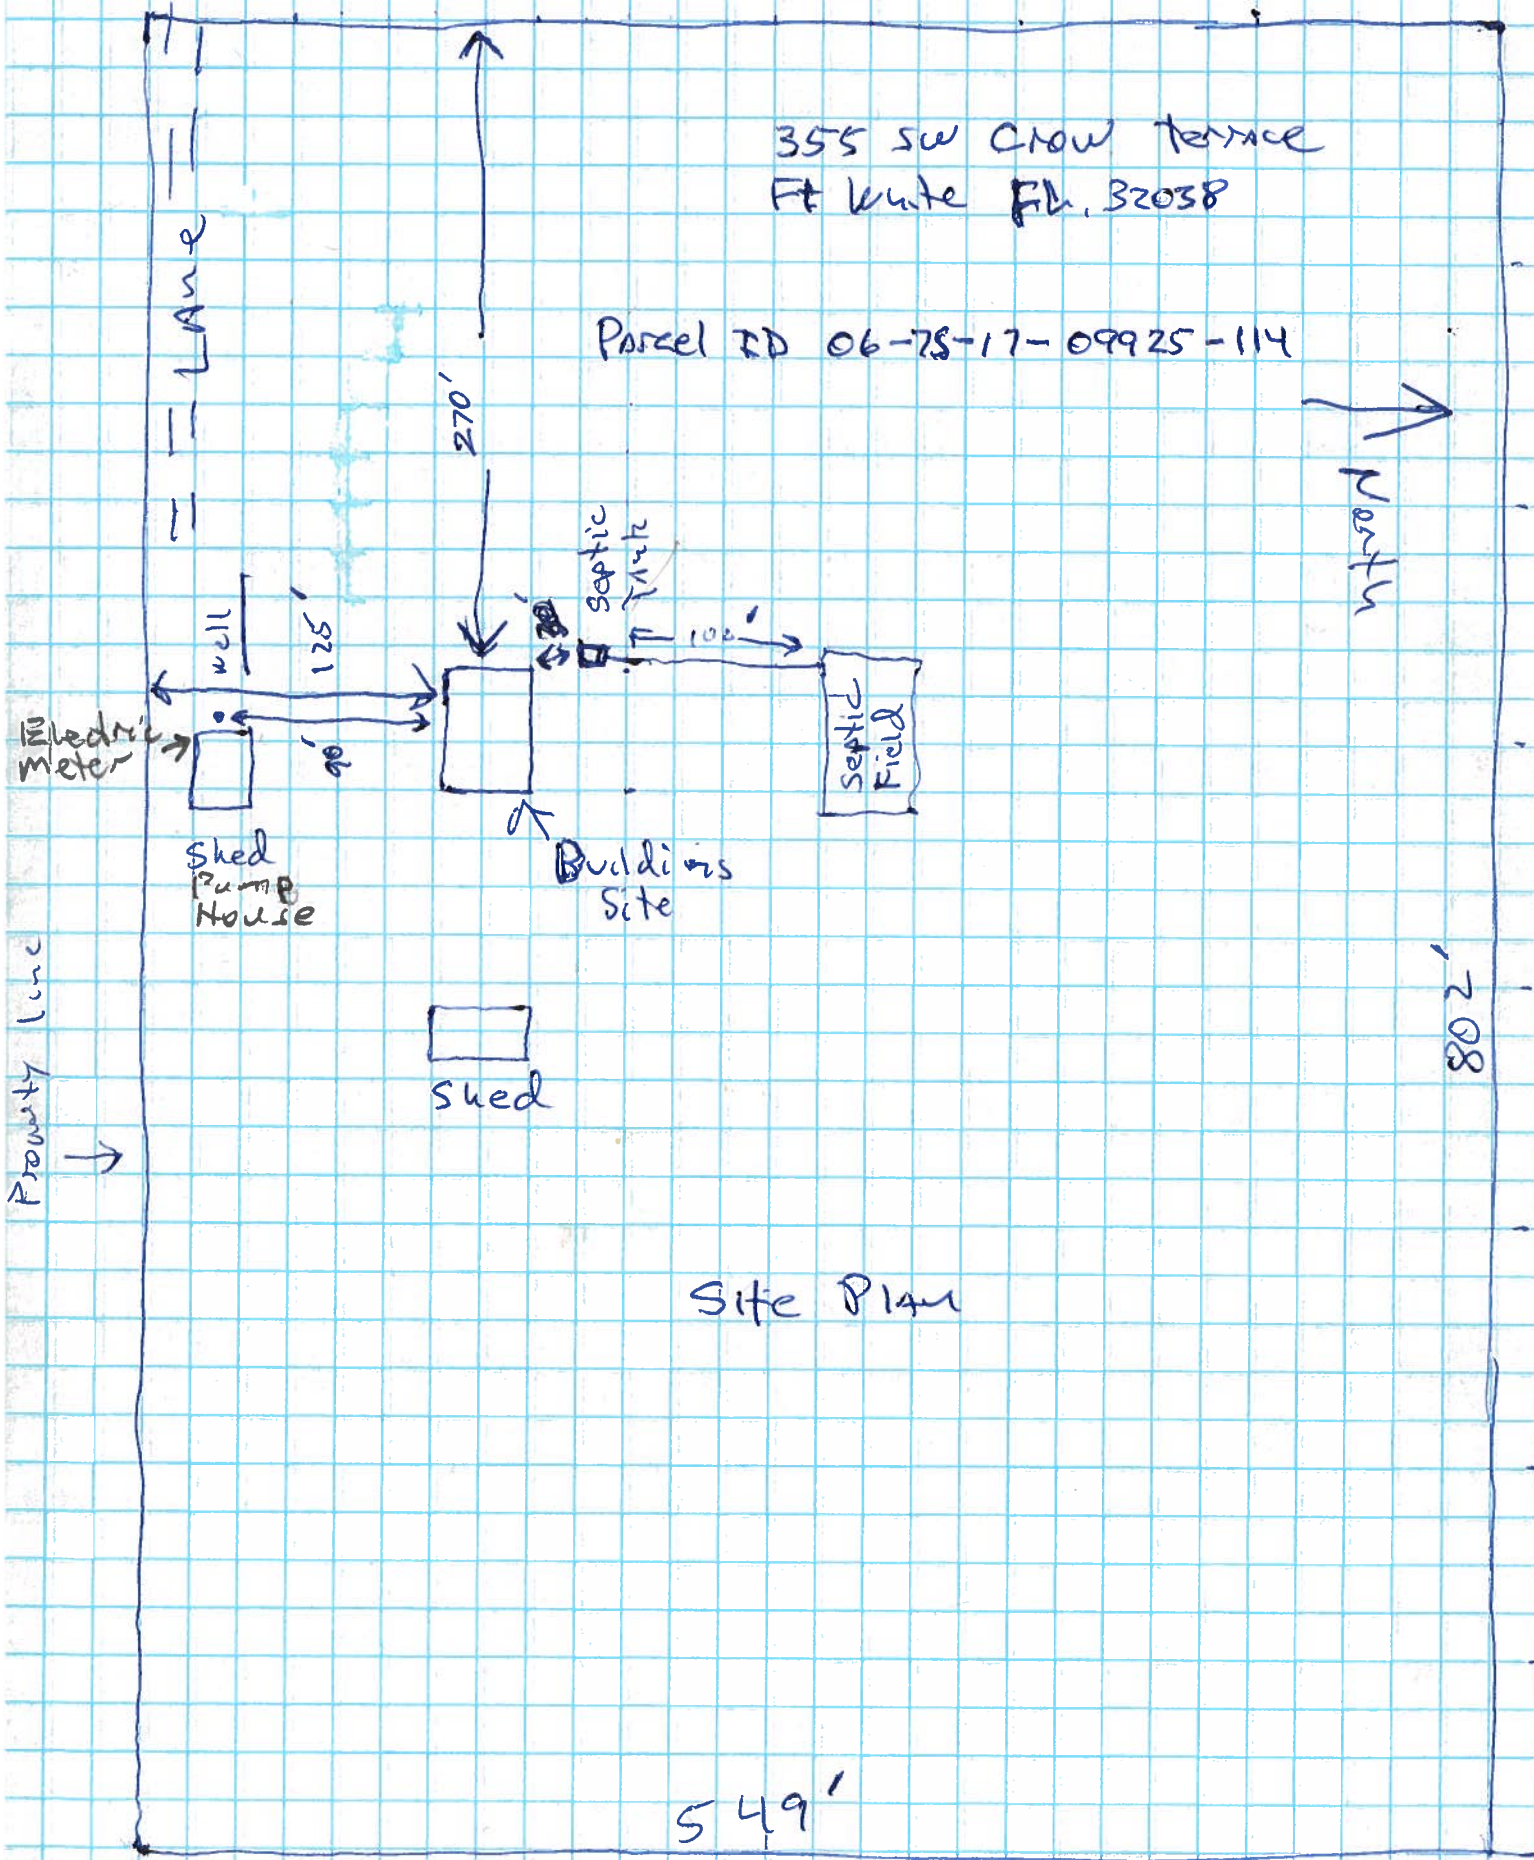 355 SW Crow Terrace
Ft White FL. 32038
LAne
Parcel ID 06-7S-17-09925-114
270'
North
Septic
Tank
well
125'
100'
Electric
meter
90'
Septic
Field
Shed
Pump
House
Building
Site
Property line
802'
Shed
Site PLAn
549'